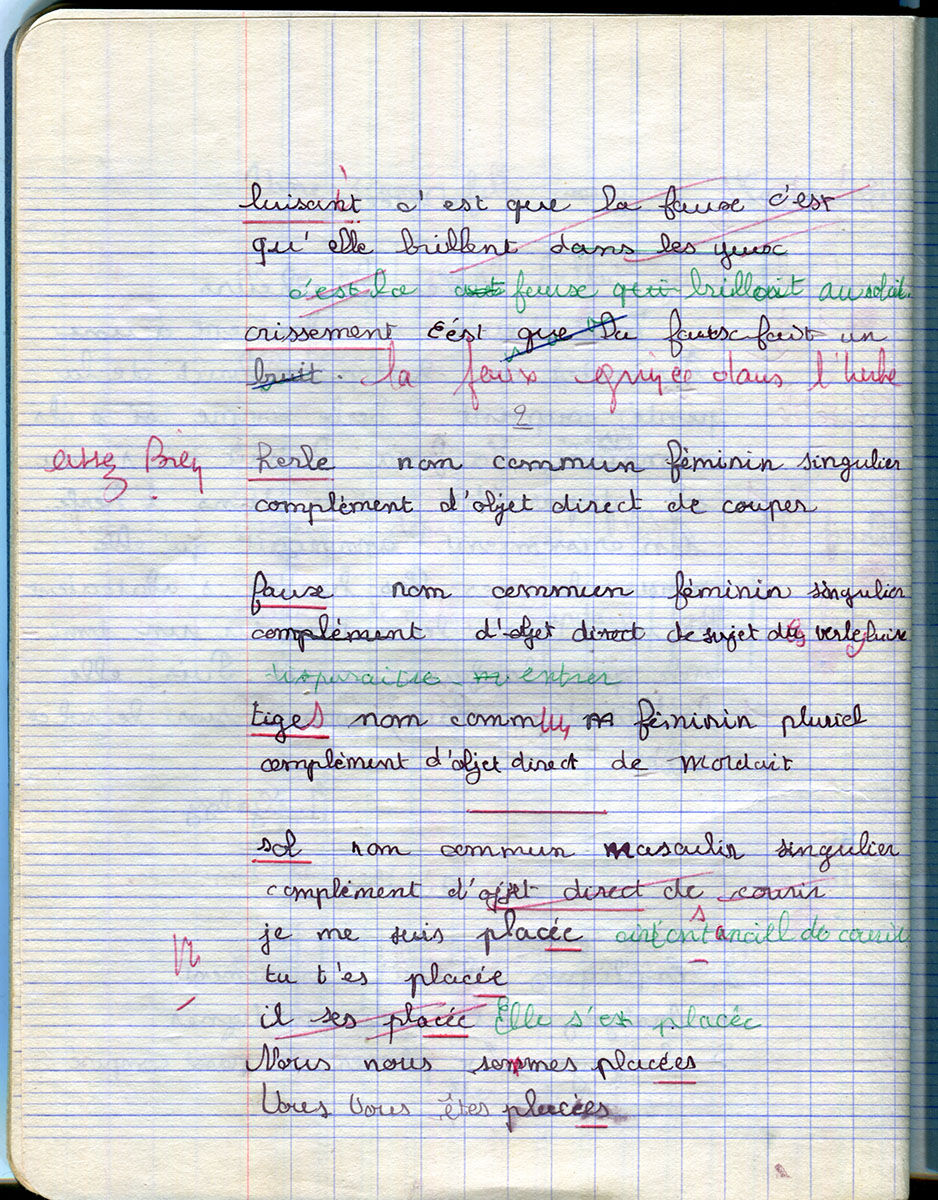 luisant c'est que la fause c'est
qu'elle brillent dans les yeux
c'est la fause qui brillait au soleil.
crissement c'est que la faux fait un
bruit. la faux crissée dans l'herbe
2
assez Bien
herbe nom commun féminin singulier
complément d'objet direct de couper
fause nom commun féminin singulier
complément d'objet direct de sujet du verbe
disparaitre entrer
tiges nom commun féminin pluriel
complément d'objet direct de mordait
sol nom commun masculin singulier
complément d'objet direct de courir
je me suis placée circonstanciell de courir
tu t'es placée
il ses placée Elle s'est placée
Nous nous sommes placées
Vous Vous êtes placées